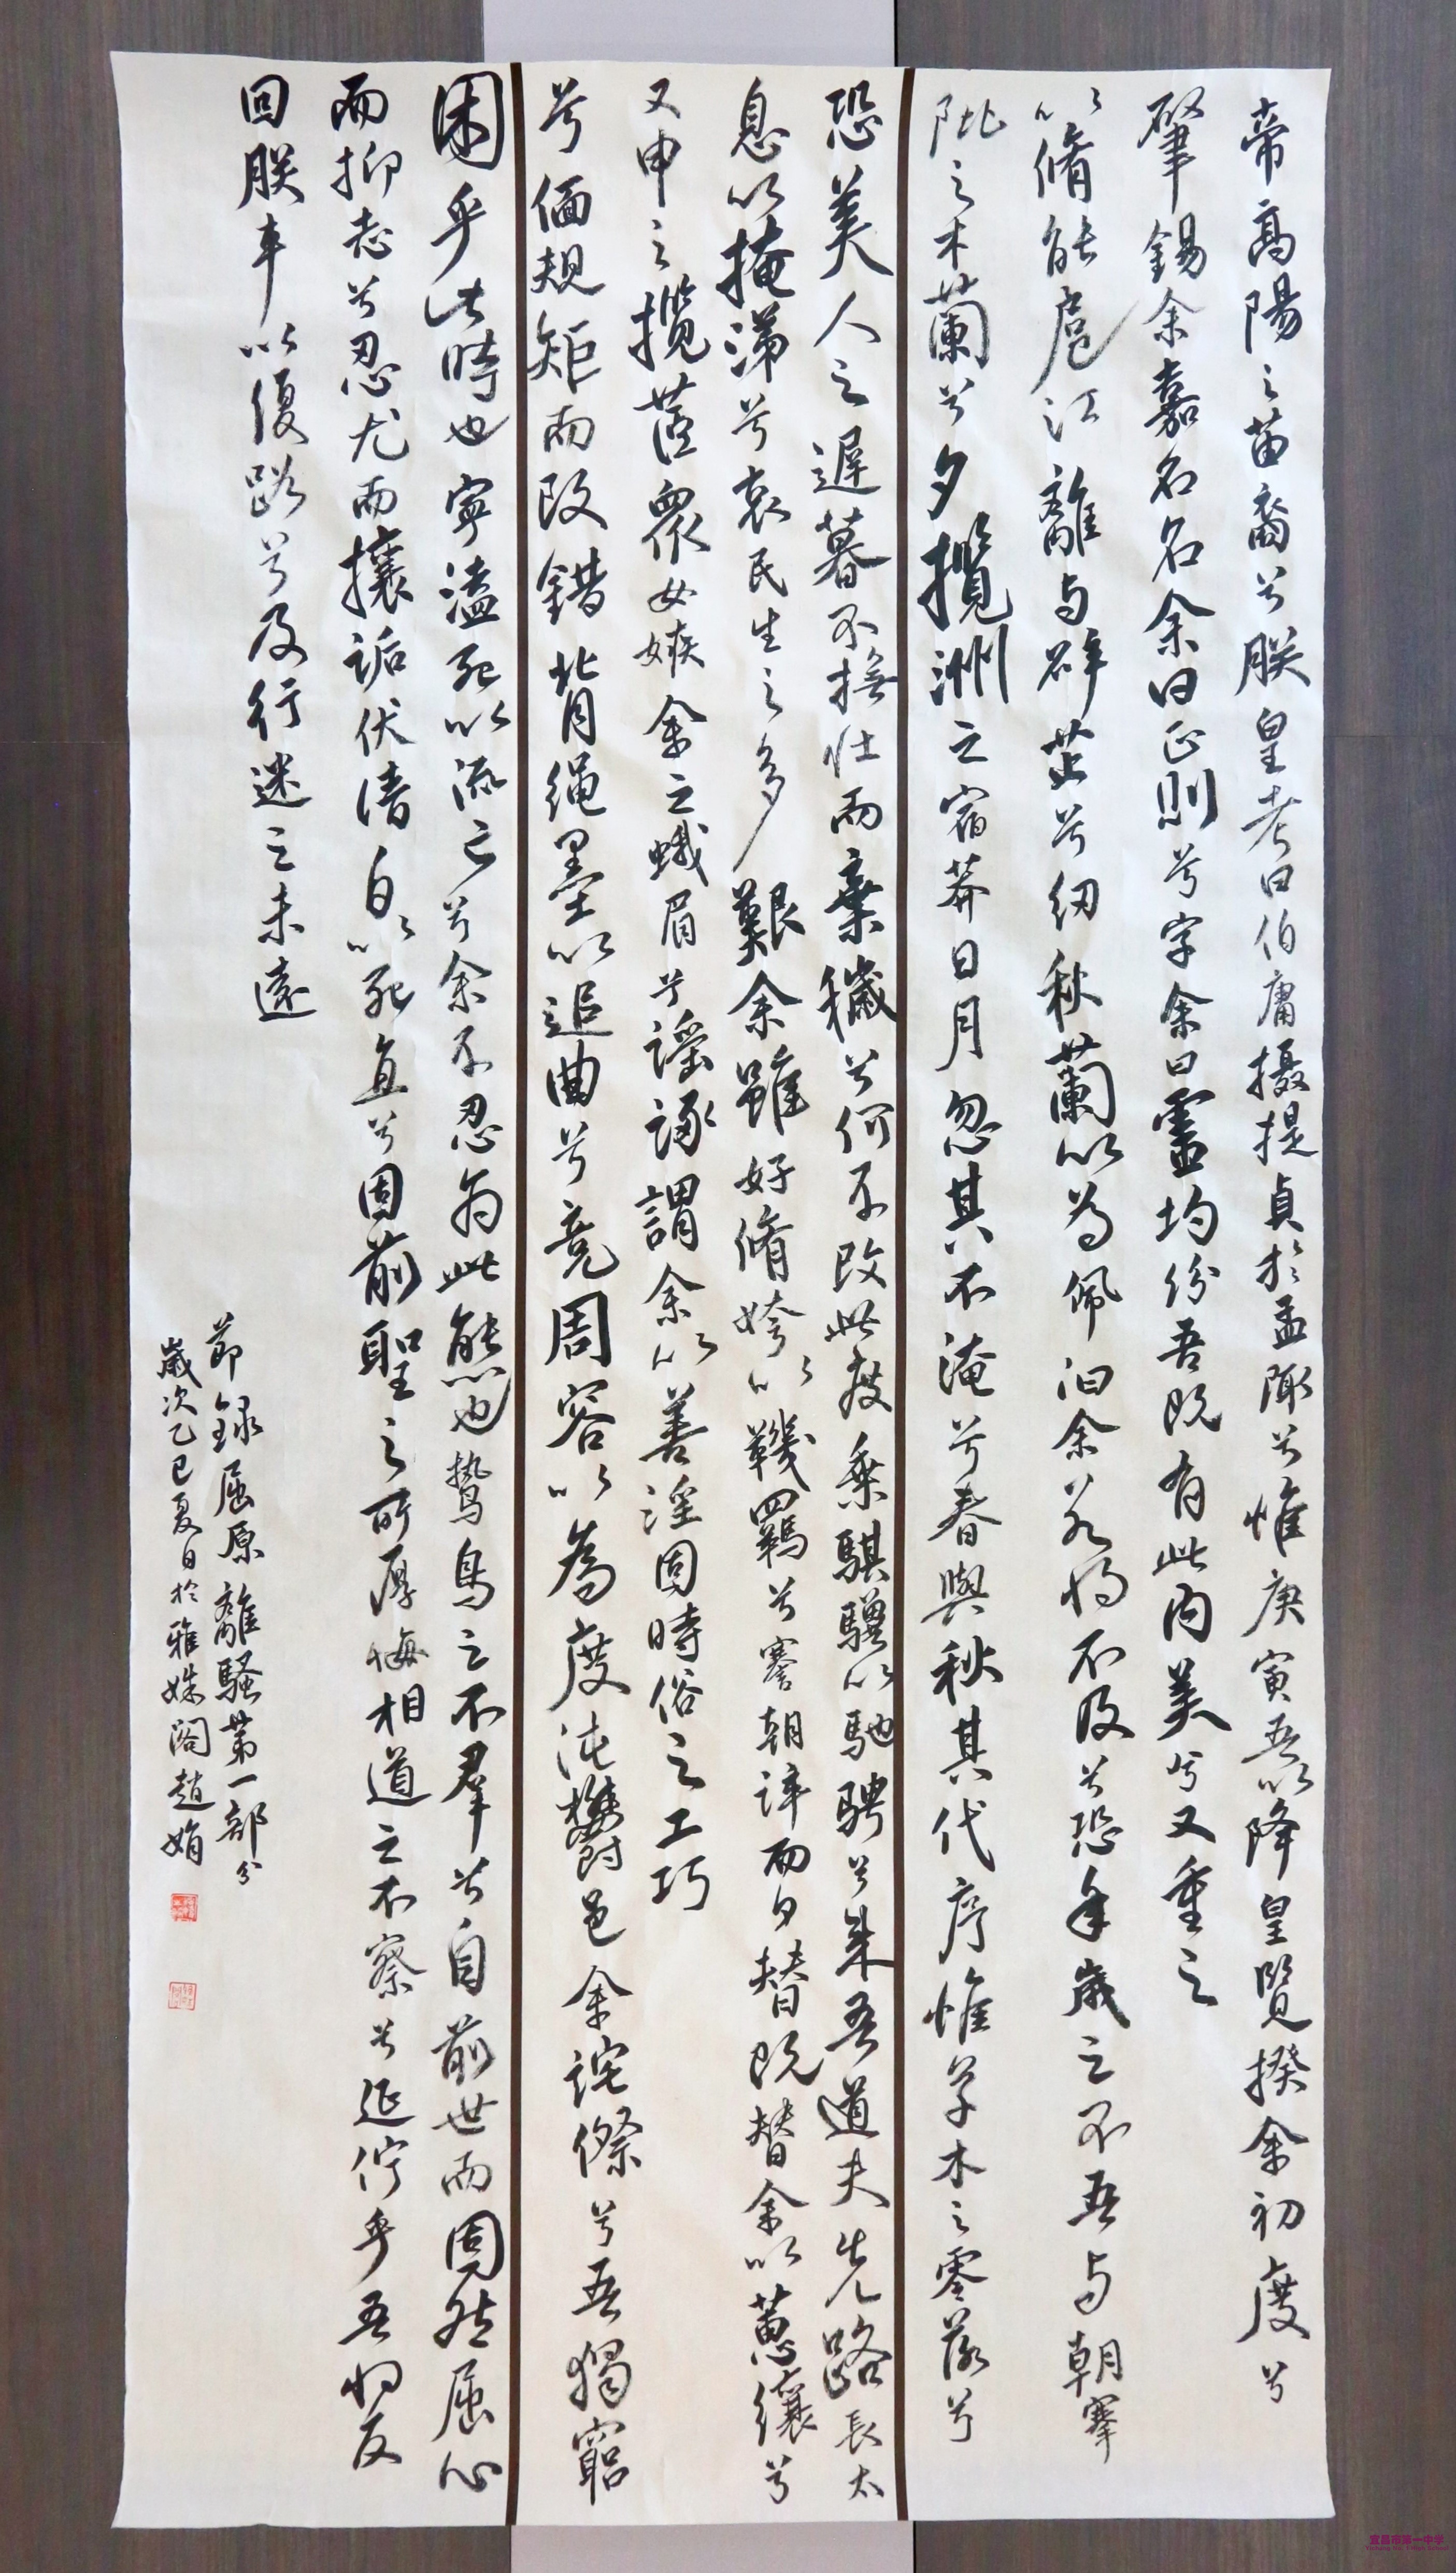 帝高陽之苗裔兮朕皇考曰伯庸摄提貞於孟陬兮惟庚寅吾以降皇覽揆余初度兮
肇錫余嘉名名余曰正則兮字余曰靈均纷吾既有此内美兮又重之
以脩能扈江離与辟芷兮纫秋蘭以為佩汩余若将不及兮恐年歲之不吾与朝搴
阰之木蘭兮夕攬洲之宿莽日月忽其不淹兮春與秋其代序惟草木之零落兮
恐美人之遲暮不撫壮而棄穢兮何不改此度乘騏驥以馳騁兮来吾道夫先路長太
息以掩涕兮哀民生之多艱余雖好脩姱以鞿羈兮謇朝誶而夕替既替余以蕙纕兮
又申之攬茝眾女嫉余之蛾眉兮謠諑謂余以善淫固時俗之工巧
兮偭規矩而改錯背绳墨以追曲兮竞周容以為度忳鬱邑余詫傺兮吾獨窮
困乎此時也寧溘死以流亡兮余不忍为此態也鷙鳥之不羣兮自前世而固然屈心
而抑志兮忍尤而攘詬伏清白以死直兮固前聖之所厚悔相道之不察兮延佇乎吾将反
回朕车以復路兮及行迷之未遠
節録屈原離騷第一部分
歲次乙巳夏日於雅姝閣趙娟
宜昌市第一中学